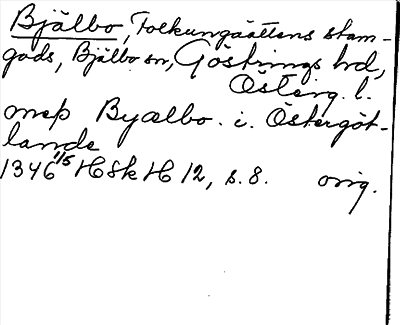 Bjälbo, Folkungaättens stam-
gods, Bjälbo sn, Göstrings hd,
Österg. l.
mep Byælbo. i. Östergöt-
lande
1346 1/5 HSk H 12, s. 8. orig.